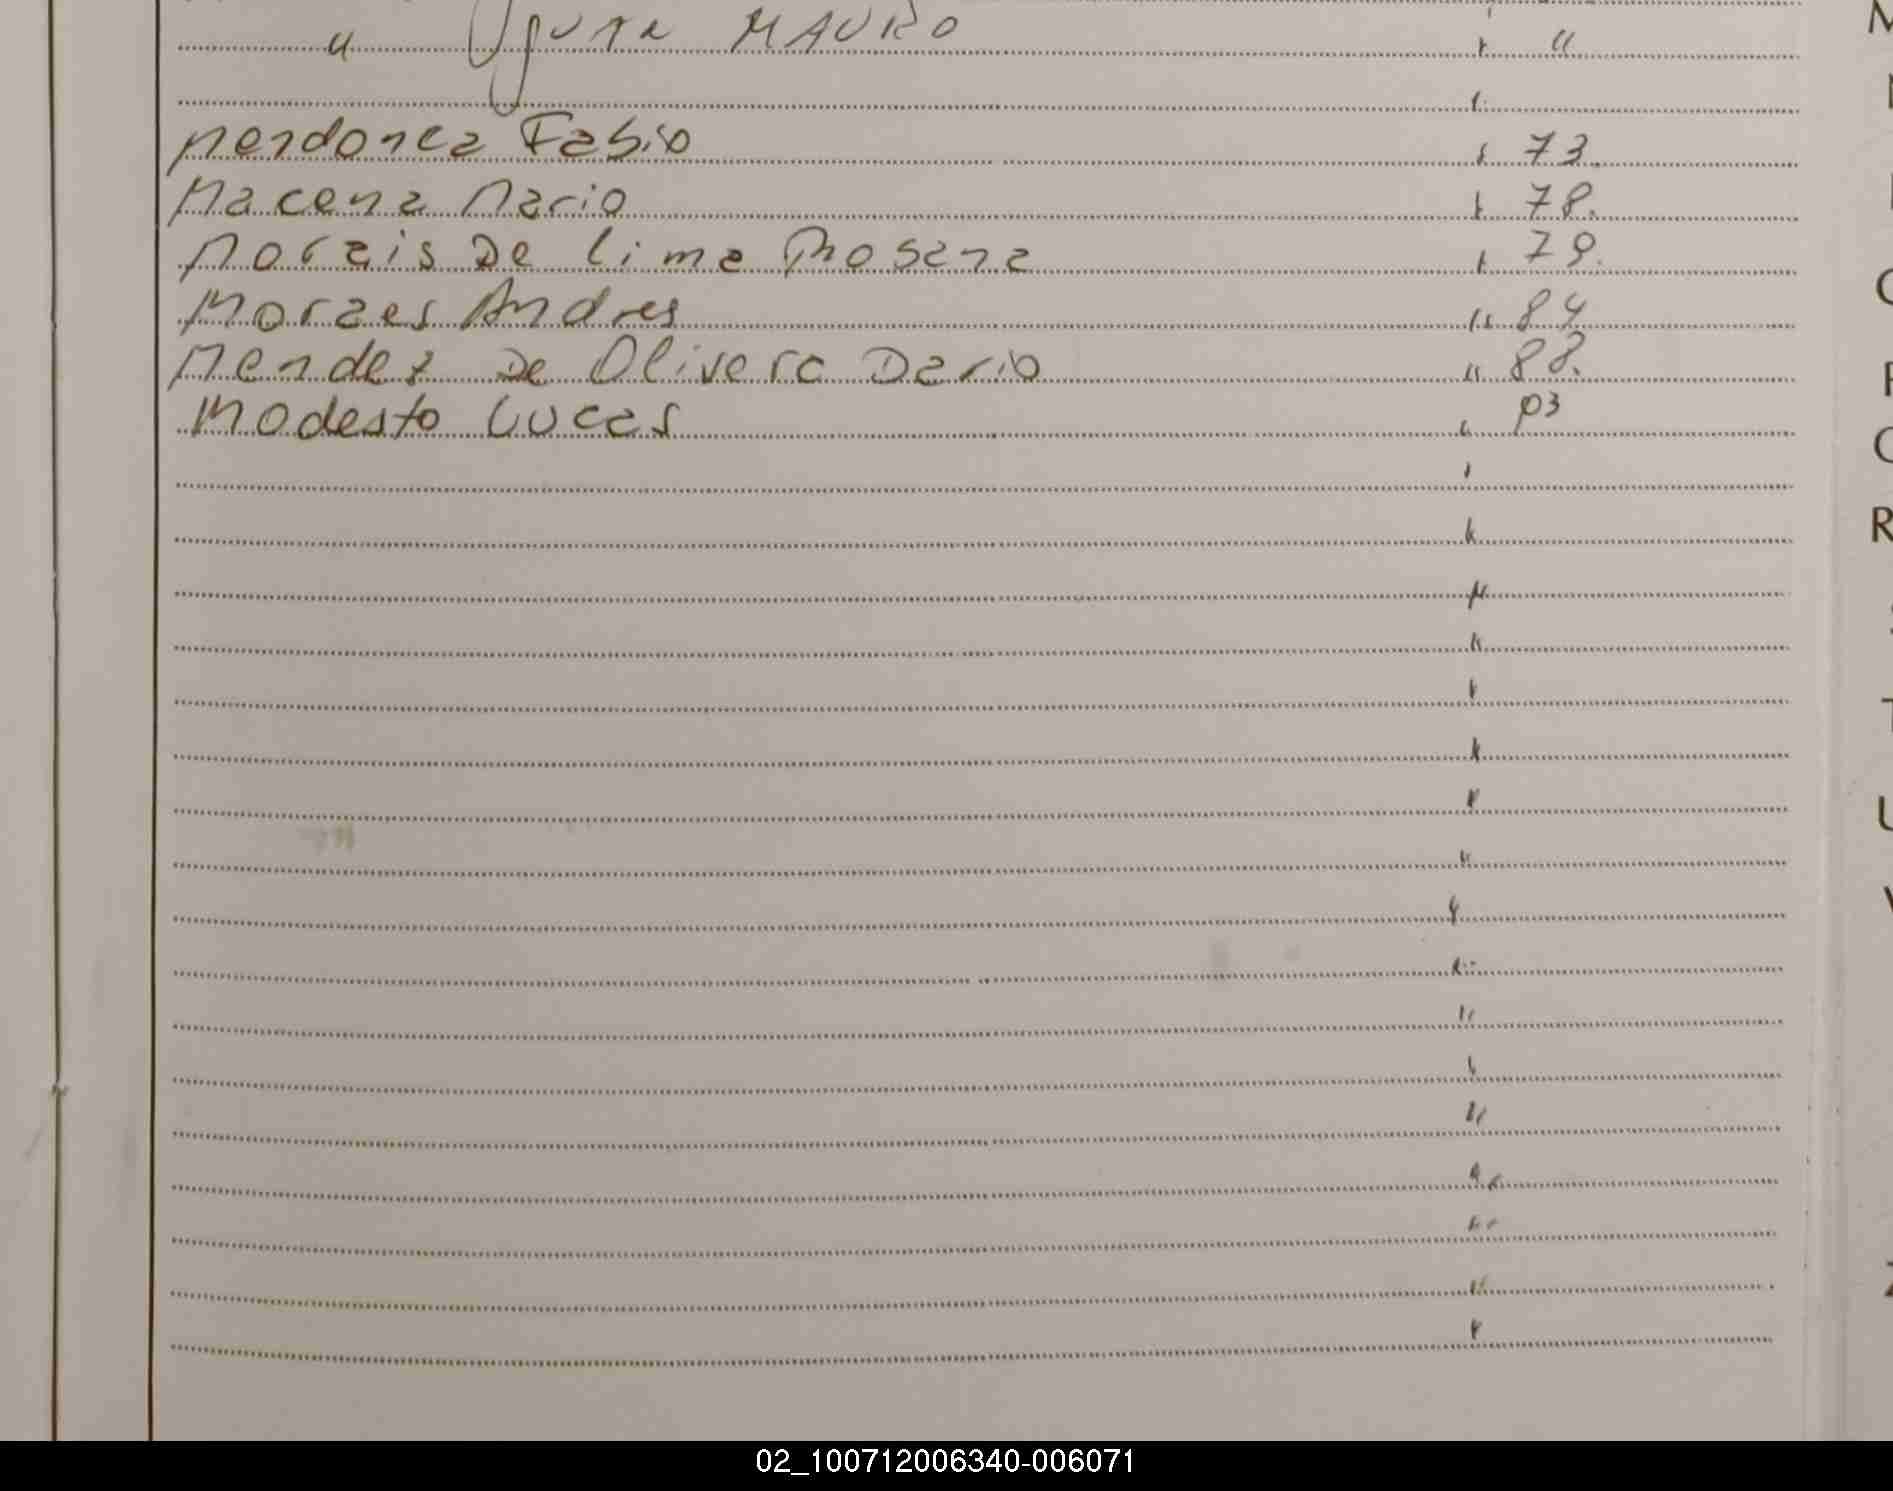 " MAURO "
Mendonca Fabio " 73.
Macena Mario " 78.
Morais De lima Rosana " 79.
Moraes Andres " 84
Mendez De Olivera Dario " 88.
Modesto Lucas " 93
02_100712006340-006071